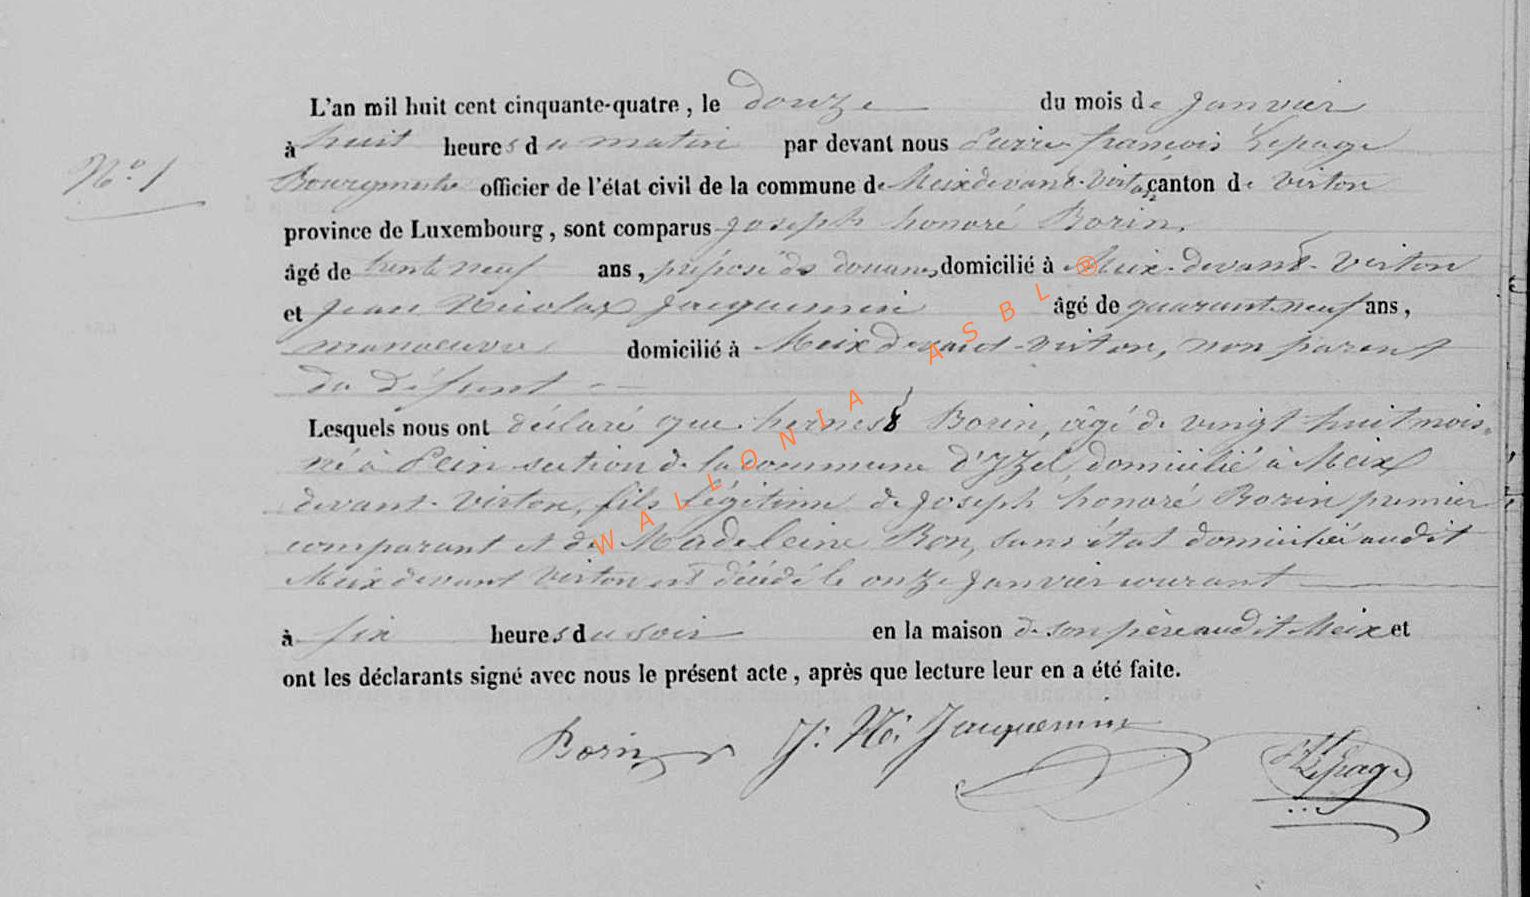 L'an mil huit cent cinquante-quatre, le douze du mois de Janvier
N.o 1
à huit heures du matin par devant nous Pierre françois Lepage
Bourgmestre officier de l'état civil de la commune de Meixdevant-Virton canton de Virton
province de Luxembourg, sont comparus Joseph honoré Borin,
âgé de trente neuf ans, préposé de douanes, domicilié à Meix-devant-Virton
et Jean Nicolas Jacquemin âgé de quarante neuf ans,
manoeuvre domicilié à Meix devant-virton, non parent
du défunt
Lesquels nous ont déclaré que Borin, âgé de vingt huit mois,
né à Pein section de la commune d'Izel, domicilié à Meix
devant-Virton, fils légitime de Joseph honoré Borin premier
comparant et de Madeleine Bon, sans état domiciliée audit
Meix devant Virton est décédé le onze Janvier courant
à six heures du soir en la maison de son père audit Meix et
ont les déclarants signé avec nous le présent acte, après que lecture leur en a été faite.
Borin J: Ni Jacquemin Lepage
WALLONIA ASBL ®